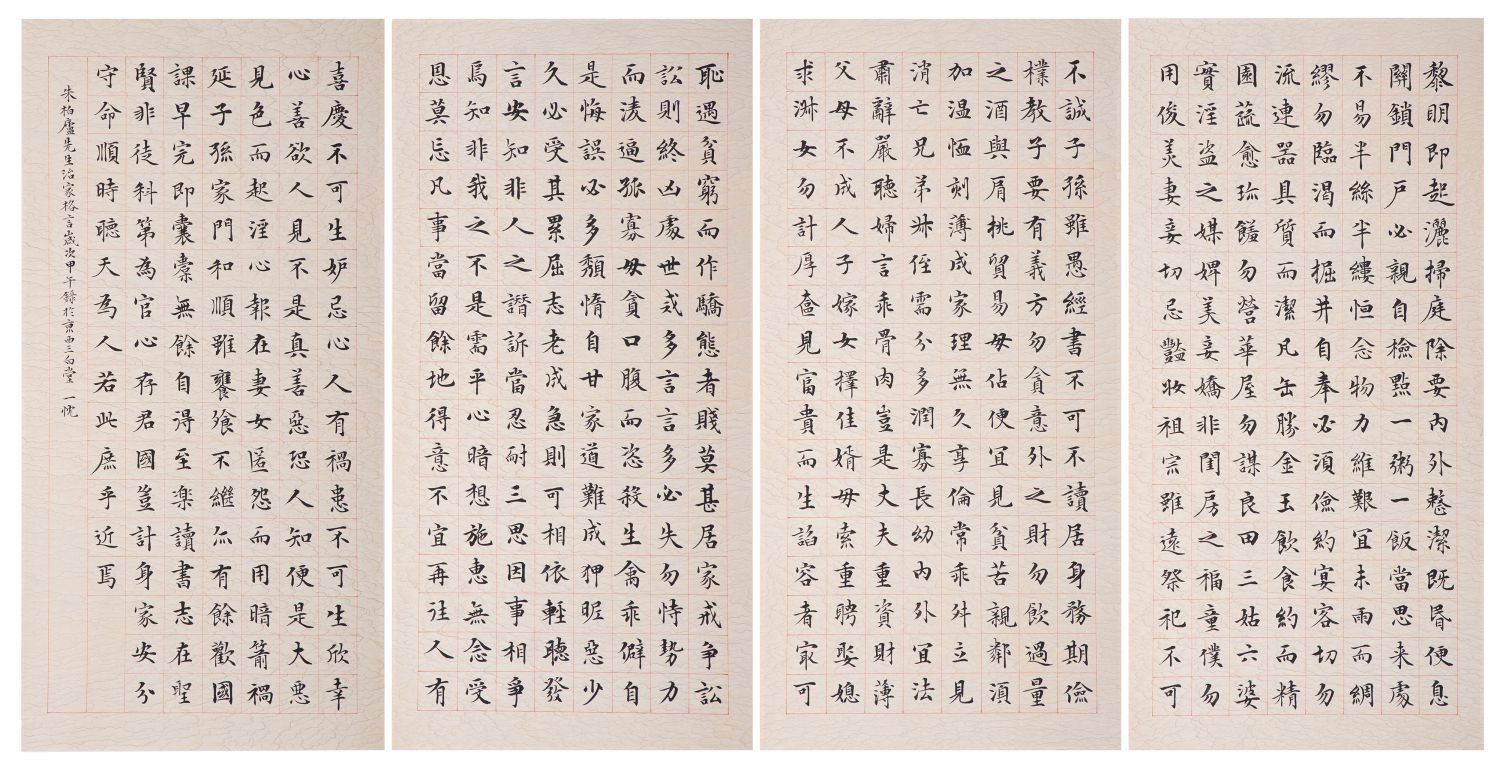 黎明即起灑掃庭除要内外整潔既昏便息
關鎖門戶必親自檢點一粥一飯當思来處
不易半絲半縷恒念物力維艱宜未雨而綢
繆勿臨渴而掘井自奉必須儉約宴客切勿
流連器具質而潔瓦缶勝金玉飲食約而精
園蔬愈珍饈勿營華屋勿謀良田三姑六婆
實淫盜之媒婢美妾嬌非閨房之福童僕勿
用俊美妻妾切忌豔妝祖宗雖遠祭祀不可
不誠子孫雖愚經書不可不讀居身務期儉
樸教子要有義方勿貪意外之財勿飲過量
之酒與肩挑貿易毋佔便宜見貧苦親鄰須
加温恤刻薄成家理無久享倫常乖舛立見
消亡兄弟叔侄需分多潤寡長幼内外宜法
肅辭嚴聽婦言乖骨肉豈是丈夫重資財薄
父母不成人子嫁女擇佳婿毋索重聘娶媳
求淑女勿計厚奩見富貴而生諂容者最可
恥遇貧窮而作驕態者賤莫甚居家戒爭訟
訟則終凶處世戒多言言多必失勿恃勢力
而淩逼孤寡毋貪口腹而恣殺生禽乖僻自
是悔誤必多頹惰自甘家道難成狎昵惡少
久必受其累屈志老成急則可相依輕聽發
言安知非人之譖訴當忍耐三思因事相爭
焉知非我之不是需平心暗想施惠無念受
恩莫忘凡事當留餘地得意不宜再往人有
喜慶不可生妒忌心人有禍患不可生欣幸
心善欲人見不是真善惡恐人知便是大惡
見色而起淫心報在妻女匿怨而用暗箭禍
延子孫家門和順雖饔飧不繼亦有餘歡國
課早完即囊橐無餘自得至樂讀書志在聖
賢非徒科第為官心存君國豈計身家安分
守命順時聽天為人若此庶乎近焉
朱柏廬先生治家格言歲次甲午錄於京西三白堂 一忱